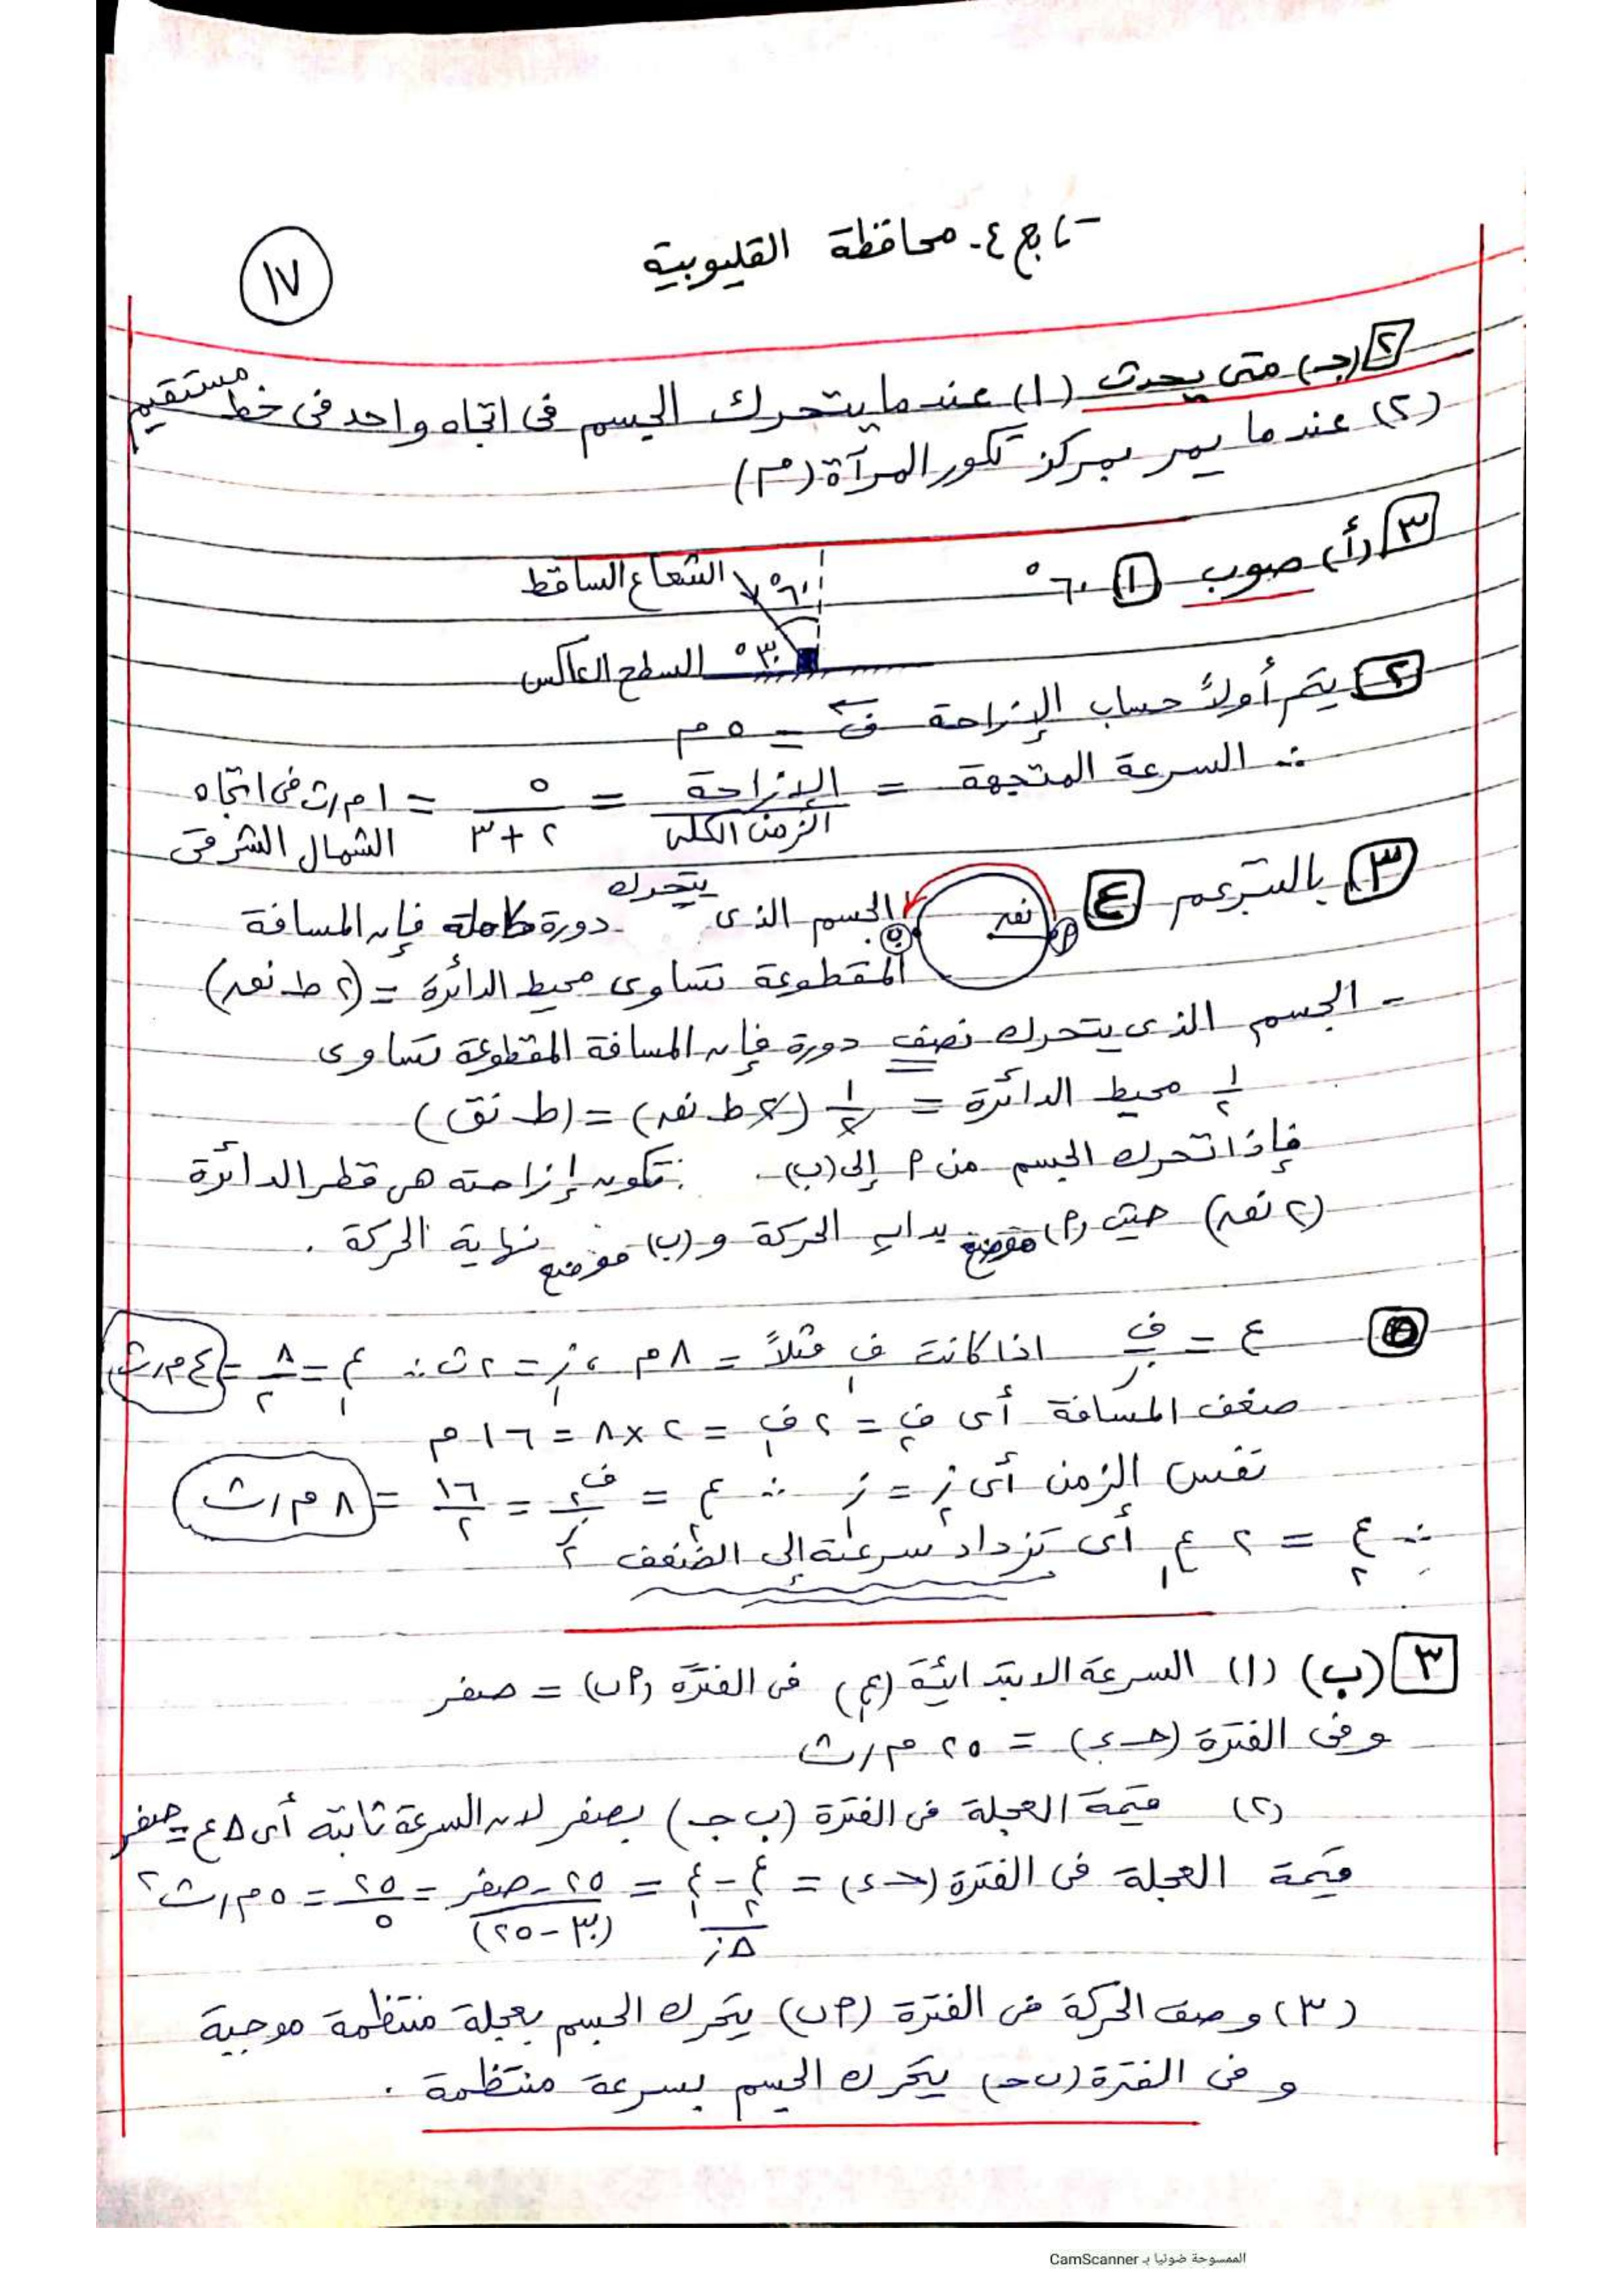 تابع ٤- محافظة القليوبية
١٧
٢ (جـ) متى يحدث (١) عندما يتحرك الجسم فى اتجاه واحد فى خط مستقيم
(٢) عندما يمر بمركز تكور المرآة (م)
٣ (أ) صوب ١ ٦٠°
الشعاع الساقط ٦٠°
السطح العاكس ٣٠°
٢ يتم أولاً حساب الإزاحة ف = ٥ م
∴ السرعة المتجهة = الإزاحة / الزمن الكلى = ٥ / ٢ + ٣ = ١ م/ث فى اتجاه
الشمال الشرقى
٣ بالسترعم ٤ نق م ب الجسم الذى يتحرك دورة كاملة فإن المسافة
المقطوعة تساوى محيط الدائرة = (٢ ط نق)
- الجسم الذى يتحرك نصف دورة فإن المسافة المقطوعة تساوى
١/٢ محيط الدائرة = ١/٢ (٢ ط نق) = (ط نق)
فإذا تحرك الجسم من م إلى (ب) فتكون إزاحته هى قطر الدائرة
(٢ نق) حيث (م) موضع بداية الحركة و (ب) موضع نهاية الحركة .
٥ ع = ف/ز اذا كانت ف١ مثلاً = ٨ م ، ز١ = ٢ ث ∴ ع١ = ٨/٢ = ٤ م/ث
ضعف المسافة أى ف٢ = ٢ ف١ = ٢ × ٨ = ١٦ م
نفس الزمن أى ز٢ = ز١ ∴ ع٢ = ف٢/ز٢ = ١٦/٢ = ٨ م/ث
∴ ع٢ = ٢ ع١ أى تزداد سرعته إلى الضعف
٣ (ب) (١) السرعة الابتدائية (ع١) فى الفترة (م ب) = صفر
وفى الفترة (حـ ء) = ٢٥ م/ث
(٢) قيمة العجلة فى الفترة (ب جـ) بصفر لان السرعة ثابتة أى Δع = صفر
قيمة العجلة فى الفترة (حـ ء) = ع٢ - ع١ / Δز = ٢٥ - صفر / (٣٠ - ٢٥) = ٢٥/٥ = ٥ م/ث٢
(٣) وصف الحركة فى الفترة (م ب) يتحرك الجسم بعجلة منتظمة موجبة
و فى الفترة (ب حـ) يتحرك الجسم بسرعة منتظمة .
الممسوحة ضوئيا بـ CamScanner